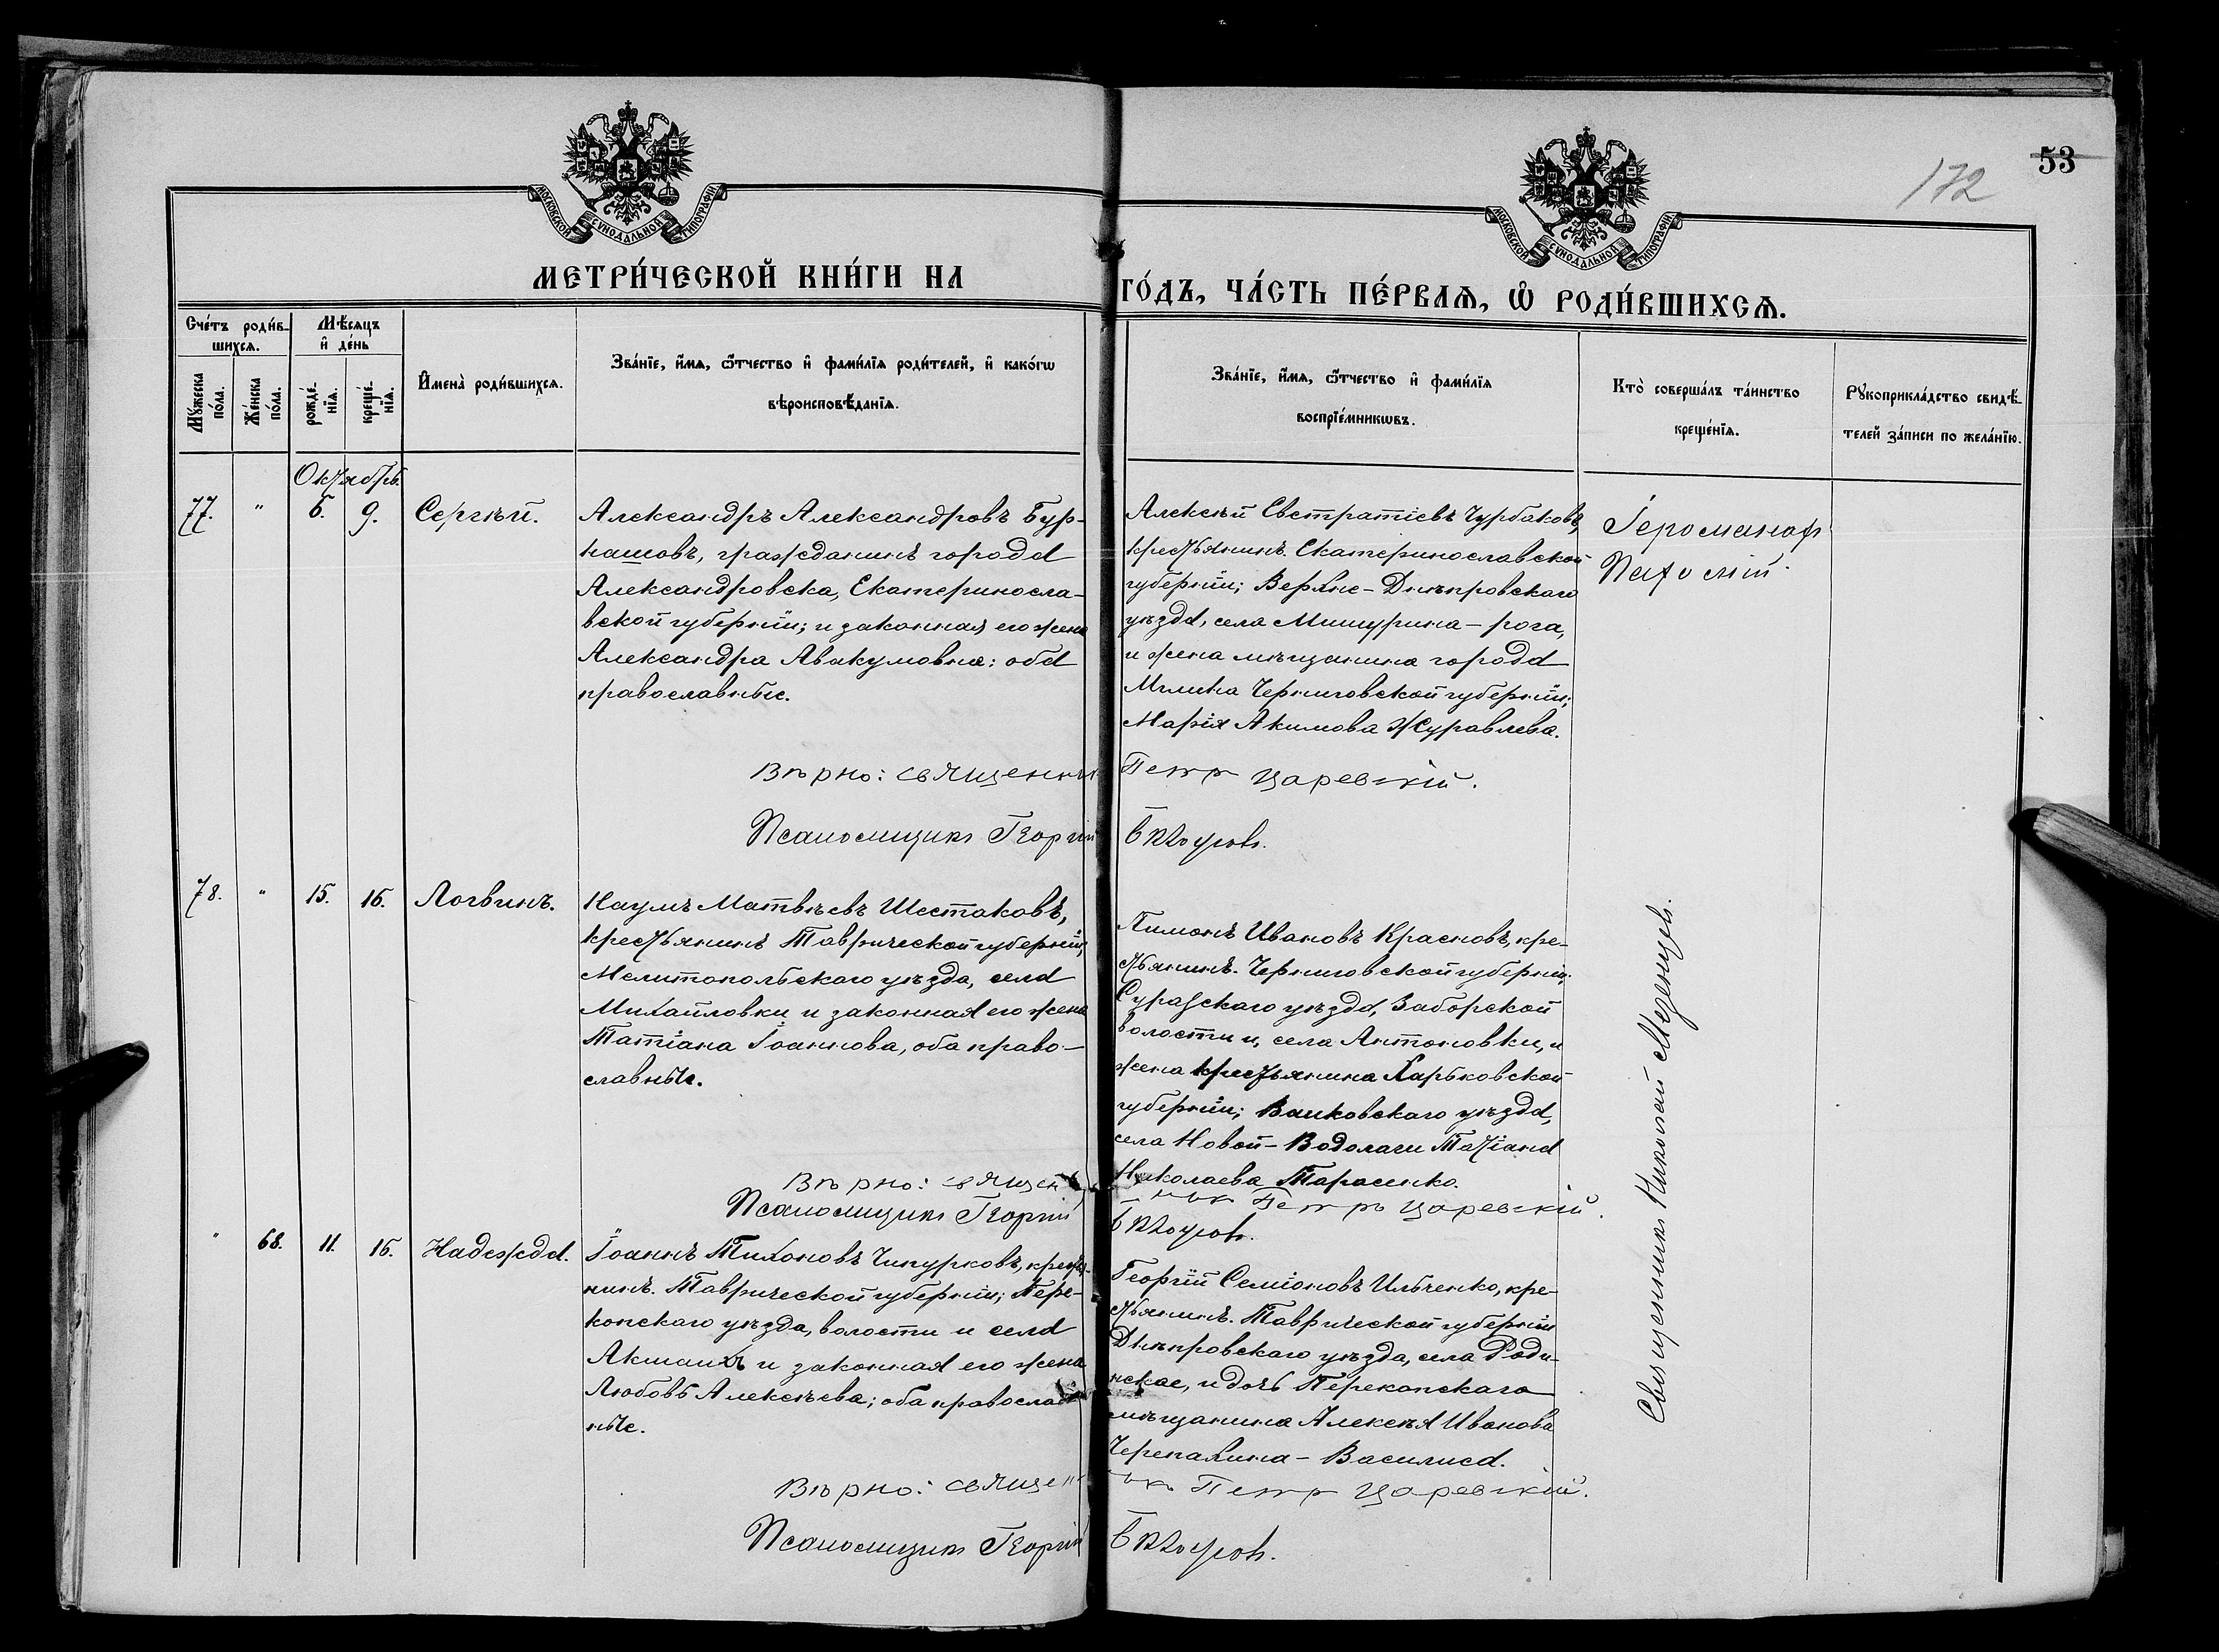 МОСКОВСКОЙ СѴНОДАЛЬНОЙ ТИПОГРАФІИ
МОСКОВСКОЙ СѴНОДАЛЬНОЙ ТИПОГРАФІИ
172
53
МЕТРИ́ЧЕСКОЙ КНИ́ГИ НА
ГО́ДЪ, ЧА́СТЬ ПЕ́РВАѦ, Ѡ҆ РОДИ́ВШИХСѦ.
Сче́тъ роди́в-
шихсѧ.
Мѣ́сѧцъ
и҆ де́нь
Мꙋ́жеска
по́ла.
Же́нска
по́ла.
рожде́-
нїѧ.
креще́-
нїѧ.
И҆мена̀ роди́вшихсѧ.
Зва́нїе, и҆́мѧ, ѻ҆́тчество и҆ фами́лїѧ роди́телей, и҆ како́гѡ
вѣроисповѣ́данїѧ.
Зва́нїе, и҆́мѧ, ѻ҆́тчество и҆ фами́лїѧ
воспрїе́мникѡвъ.
Кто̀ соверша́лъ та́инство
креще́нїѧ.
Рꙋкоприкла́дство свидѣ́-
телей за́писи по жела́нїю.
Октябрь.
77. " 6. 9. Сергѣй.
Александръ Александровъ Бур-
нашовъ, гражданинъ города
Александровска, Екатериносла-
вской губерніи; и законная его жена
Александра Авакумовна; оба
православные.
Алексѣй Евстратіевъ Чурбаковъ,
крестьянинъ Екатеринославской
губерніи; Верхне-Днѣпровскаго
уѣзда, села Мишурина-рога,
и жена мѣщанина города
Мглина Черниговской губерніи;
Марія Акимова Журавлева.
Іеромонахъ
Вѣрно: священникъ Петръ Царевскій.
Псаломщикъ Георгій
78. " 15. 16. Логвинъ.
Наумъ Матвѣевъ Шестаковъ,
крестьянинъ Таврической губерніи,
Мелитопольскаго уѣзда, села
Михайловки и законная его жена
Татіана Іоаннова, оба право-
славные.
Пимонъ Ивановъ Красновъ, кре-
стьянинъ. Черниговской губерніи;
Суражскаго уѣзда, Заборской
волости и, села Антоновки, и
жена крестьянина Харьковской
губерніи; Валковскаго уѣзда,
села Новой-Водолаги Татіана
Николаева Тарасенко.
Вѣрно: священникъ Петръ Царевскій.
Псаломщикъ Георгій
" 68. 11. 16. Надежда.
Іоаннъ Тихоновъ Чипурковъ, крестья-
нинъ. Таврической губерніи; Пере-
копскаго уѣзда, волости и села
и законная его жена
Любовь Алексѣева; оба православ-
ные.
Георгій Семіоновъ Ильченко, кре-
стьянинъ. Таврической губерніи
Днѣпровскаго уѣзда, села Роди-
нское, и дочь Перекопскаго
мѣщанина Алексѣя Иванова
Черепахина - Василиса.
Священникъ Николай Мезенцевъ.
Вѣрно: священникъ Петръ Царевскій.
Псаломщикъ Георгій